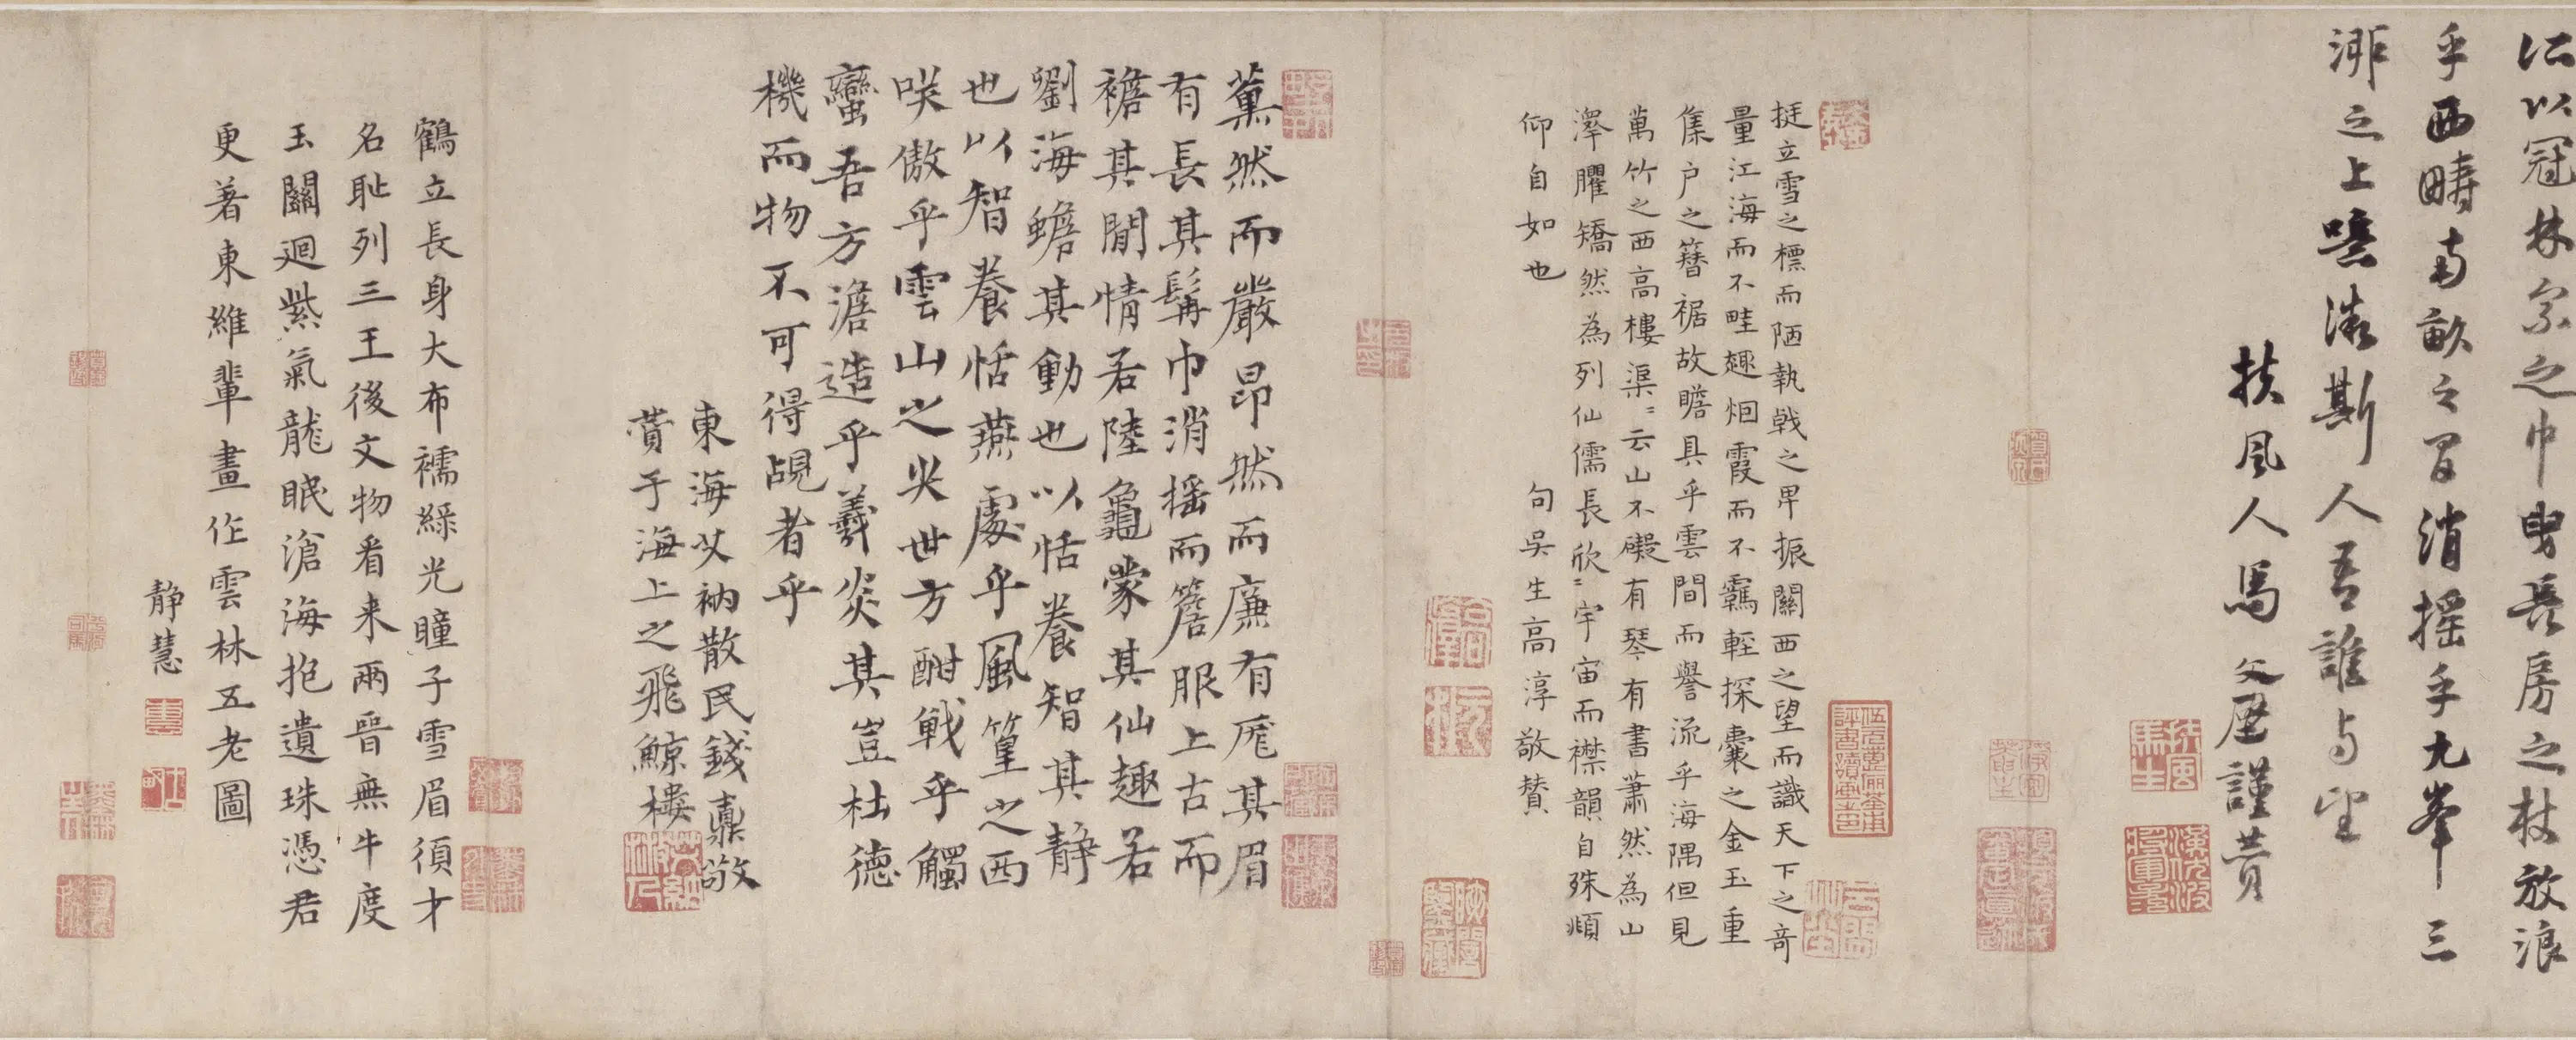 江以冠林宗之巾曳長房之杖放浪
乎西疇南畝之間消搖乎九峯三
泖之上噫微斯人吾誰与望
扶風人馬文璧謹贊
挺立雪之標而陋執戟之卑振關西之望而識天下之奇
量江海而不畦趣烟霞而不羈輕探囊之金玉重
集户之簪裾故瞻具乎雲間而譽流乎海隅但見
萬竹之西高樓渠〻云山不礙有琴有書蕭然為山
澤臞矯然為列仙儒長欣〻宇宙而襟韻自殊頫
仰自如也
句吳生高淳敬贊
薰然而嚴昂然而廉有厖其眉
有長其髯巾消摇而簷服上古而
襜其閒情若陸龜蒙其仙趣若
劉海蟾其動也以恬養智其静
也以智養恬燕處乎風篁之西
咲傲乎雲山之尖世方酣戰乎觸
蠻吾方澹造乎羲炎其豈杜德
機而物不可得覘者乎
東海艾衲散民錢鼒敬
贊于海上之飛鯨樓
鶴立長身大布襦綠光瞳子雪眉須才
名耻列三王後文物看来兩晉無牛度
玉關迴紫氣龍眠滄海抱遺珠憑君
更著東維輩畫作雲林五老圖
静慧